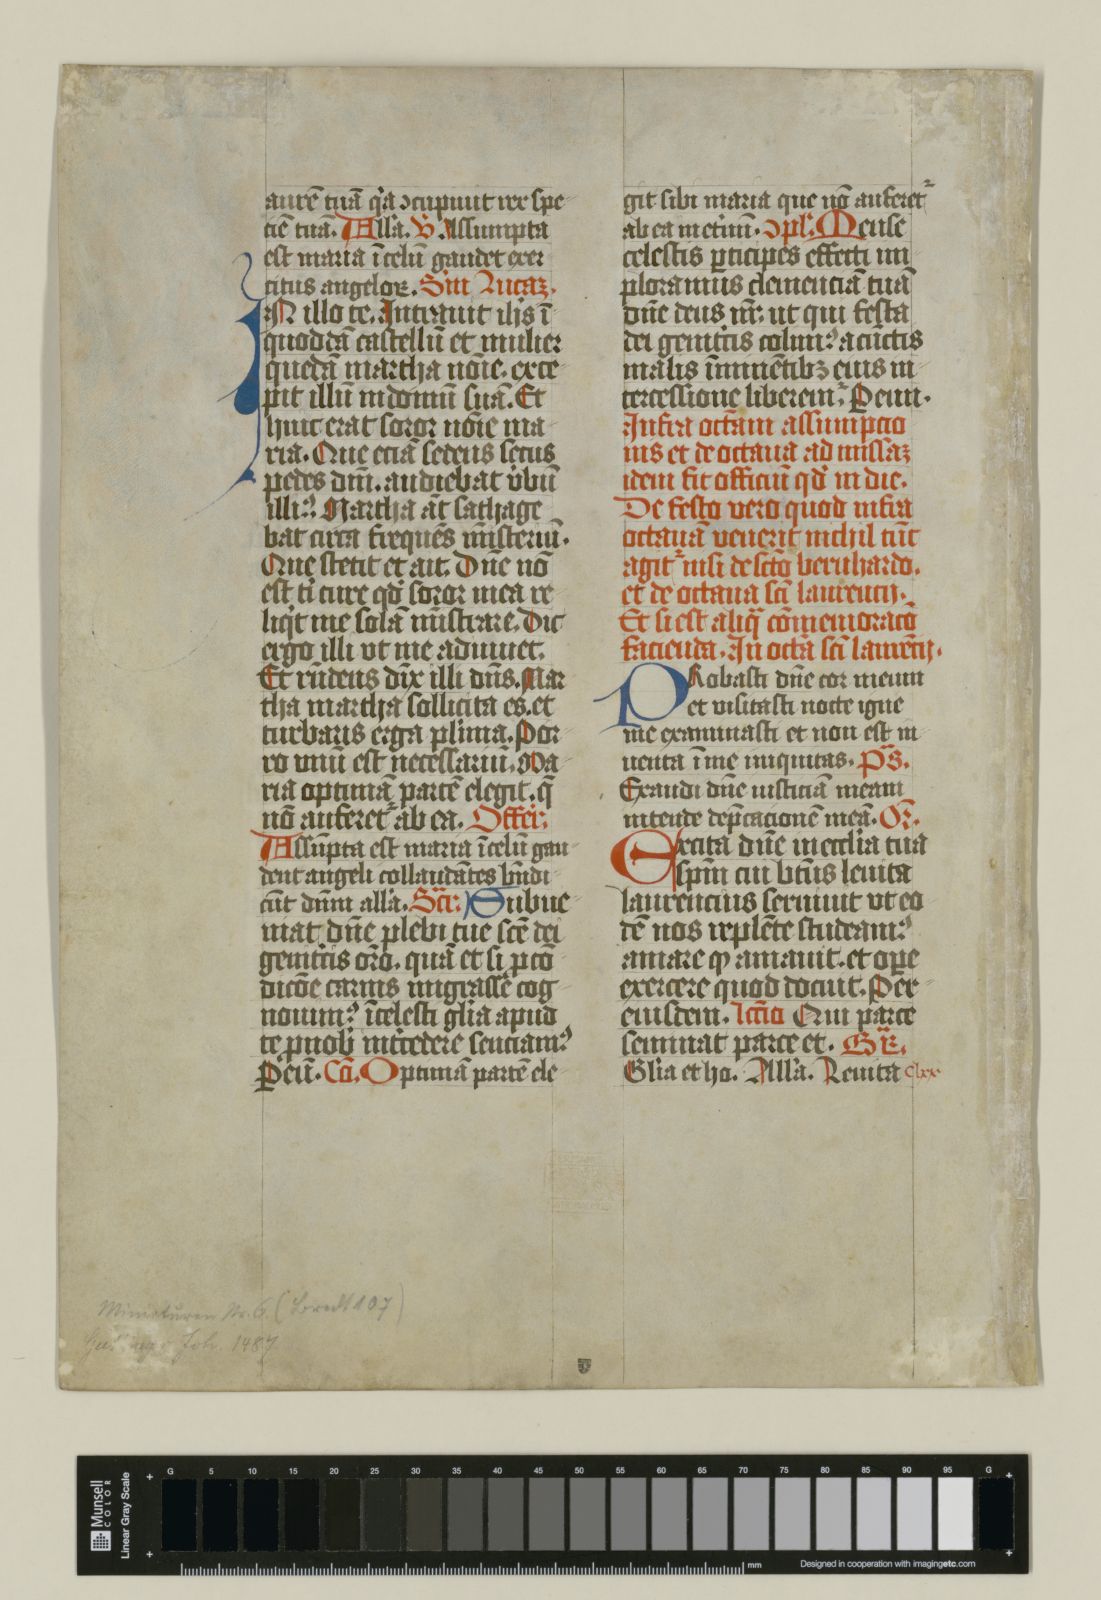 aurē tuā q̄a ɔcupiuit rex spe
ciē tuā. Alla. V̄ Assumpta
est maria ī celū gaudet exer
citus angeloꝝ. Sm̄ Lucaꝫ.
IN illo tē. Intrauit ihs ī
quoddā castellū et mulier
quedā martha nōīe. exce
pit illū in domū suā. Et
huic erat soror nōīe ma
ria. Que eciā sedens secus
pedes dn̄i. audiebat v̄bū
illiꝰ. Martha āt sathage
bat circa freques̄ mīsteriū.
Que stetit et ait. Dn̄e nō
est t̄i cure qd̄ soror mea re
liq̇t me solā mīstrare. Dic
ergo illi vt me adiuuet.
Et rn̄dens dix̄ illi dn̄s. Mar
tha martha sollicita es. et
turbaris erga plīma. Por
ro vnū est necessariū. Ma
ria optimā partē elegit. q̄
nō auferet᷑ ab ea. Offer̄.
Assūpta est maria ī celū gau
dent angeli collaudātes bn̄di
cūt dn̄m alla. Scr̄. Subue
niat dn̄e plebi tue scē dei
genitr̄is orō. quā et si p̄ co
dicōe carnis migrasse cog
nouim᷒ ī celesti glīa apud
te p̄ nob̄ īt̄cedere senciam᷒
P̄ eū. Cō. Optimā partē ele
git sibi maria que nō auferet᷑
ab ea in et̄nū. ɔpl̄. Mense
celestis p̄ticipes effecti im
ploramus clemenciā tuā
dn̄e deus nr̄. ut qui festa
dei genitr̄is colim᷒ a cūctis
malis īminētibꝫ eius in
tercessione liberem᷒. P̄ eun.
Infra octam̄ assumpcio
nis et de octaua ad missaꝫ
idem fit officiū qd̄ in die.
De festo vero quod infra
octauā venerit nichil tūc
agit᷑ nisi de scō bernhardo.
et de octaua scī laurencij.
Et si est aliq̄ cōmemoracō
facienda. In octā scī laurēcij.
PRobasti dn̄e cor meum
et visitasti nocte igne
me examinasti et non est in
uenta ī me iniquitas. P̄s.
Exaudi dn̄e iusticiā meam
intende dep̄cacionē meā. Or̄.
Excita dn̄e in ecclīa tua
spm̄ cui bt̄us leuita
laurencius seruiuit vt eo
dē nos replēte studeam᷒
amare qͦ amauit. et oꝑe
exercere quod docuit. Per
eiusdem. lccīo Qui parce
seminat parce et. Gr̄.
Glīa et ho. Alla. Leuita Clxx
Miniaturen Nr. 6. (Bredt 107)
Joh. 1487
Munsell
COLOR
Linear Gray Scale
G 5 10 15 20 25 30 35 40 45 50 55 60 65 70 75 80 85 90 95 G
mm
Designed in cooperation with imagingetc.com